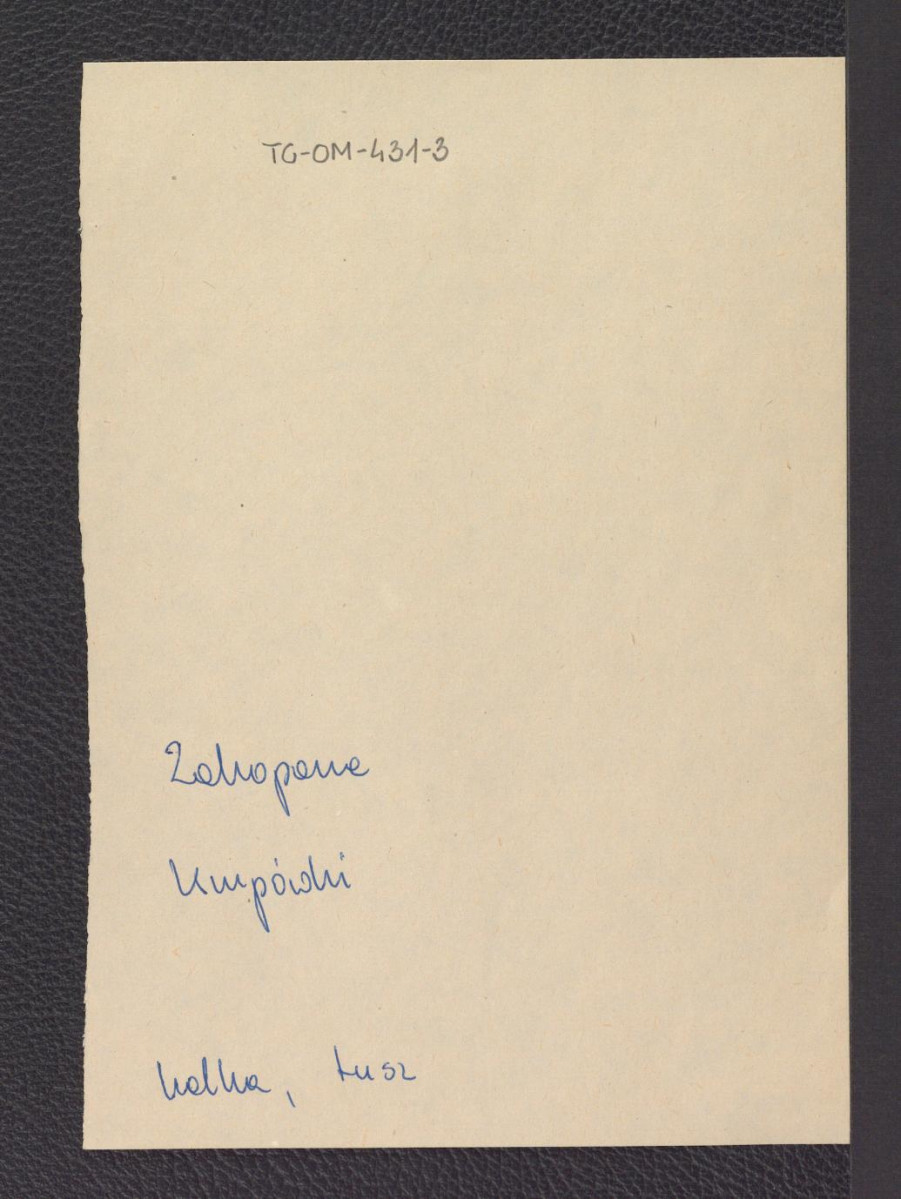 TG-OM-431-3
Zakopane
Krupówki
kalka, tusz